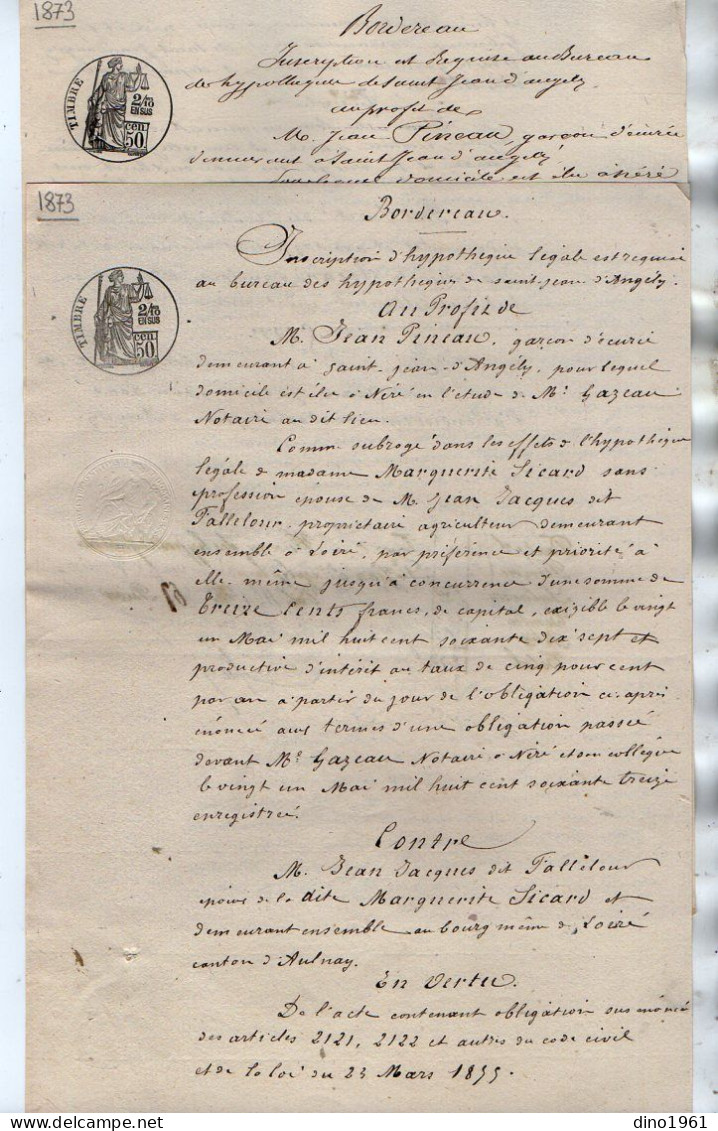 1873
Bordereau
Inscription est Requise au Bureau
des hypothèques de Saint Jean d'angely
au profit de
M. Jean Pineau, garçon d'écurie
demeurant à Saint Jean d'angely
domicile est élu à Néré
TIMBRE
2/10
EN SUS
50 cen.
1873
Bordereau.
Inscription d'hypothèque légale est requise
au bureau des hypothèques de saint-jean-d'Angély.
Au Profit de
M. Jean Pineau, garçon d'écurie
demeurant à saint-jean-d'Angély, pour lequel
domicile est élu à Néré en l'étude de Me. Gazeau
Notaire au dit lieu.
Comme subrogé dans les effets de l'hypothèque
légale de madame Marguerite Sicard sans
profession épouse de M. Jean Jacques dit
Talleleur, propriétaire agriculteur demeurant
ensemble à Loiré, par préférence et priorité à
elle-même jusqu'à concurrence d'une somme de
Treize Cents francs, de capital, exigible le vingt
un Mai mil huit cent soixante dix sept et
productive d'intérêt au taux de cinq pour cent
par an à partir du jour de l'obligation ci-après
énoncé aux termes d'une obligation passée
devant Me Gazeau Notaire à Néré et son collègue
le vingt un Mai mil huit cent soixante treize
enregistrée.
Contre
M. Jean Jacques dit Talleleur
époux de la dite Marguerite Sicard et
demeurant ensemble au bourg même de Loiré
canton d'Aulnay.
En Vertu.
De l'acte contenant obligation sus énoncé
des articles 2121, 2122 et autres du code civil
et de la loi du 23 Mars 1855.
TIMBRE
2/10
EN SUS
cen.
50
dino1961